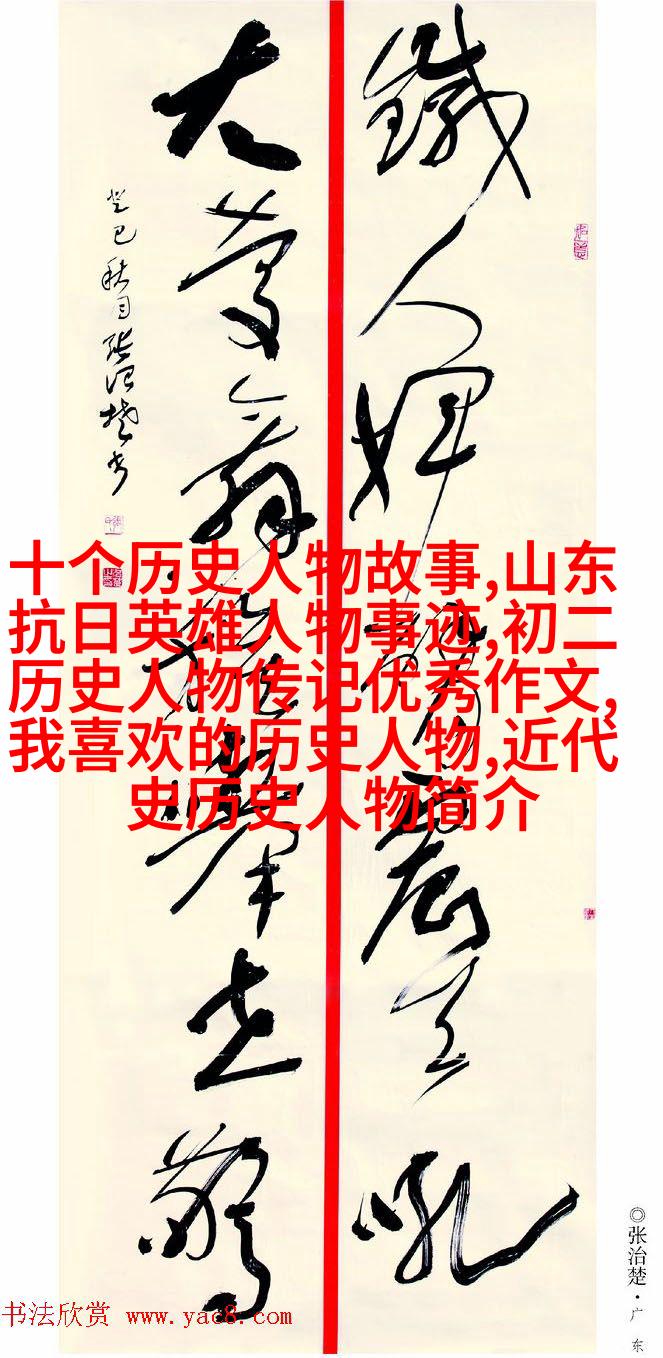 鐵人揮震天吼
大舉世驚
癸巳秋月張治楚書
十个历史人物故事,山东
抗日英雄人物事迹,初二
历史人物传记优秀作文,
我喜欢的历史人物,近代
史历史人物简介
◎张治楚·广东
书法欣赏 www.yac8.com